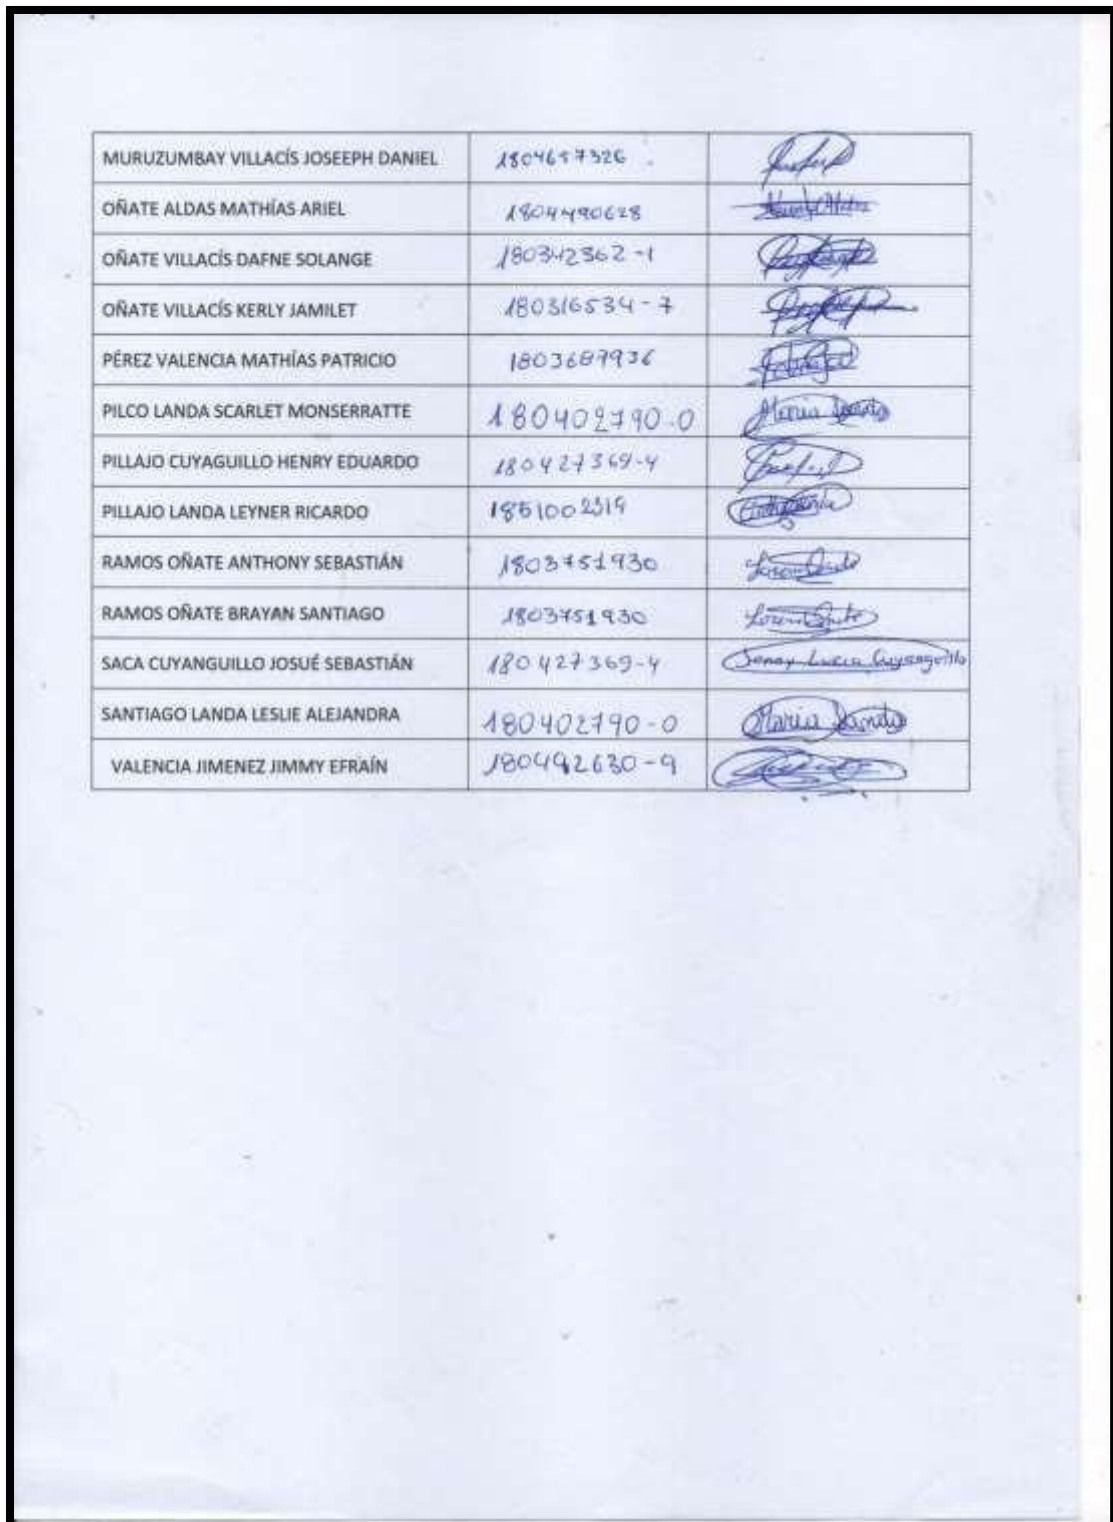 MURUZUMBAY VILLACÍS JOSEEPH DANIEL 1804657326
OÑATE ALDAS MATHÍAS ARIEL 1804490628
OÑATE VILLACÍS DAFNE SOLANGE 180342362-1
OÑATE VILLACÍS KERLY JAMILET 180316534-7
PÉREZ VALENCIA MATHÍAS PATRICIO 1803687936
PILCO LANDA SCARLET MONSERRATTE 180402790-0 Maria Landa
PILLAJO CUYAGUILLO HENRY EDUARDO 180427369-4
PILLAJO LANDA LEYNER RICARDO 1851002319
RAMOS OÑATE ANTHONY SEBASTIÁN 1803751930
RAMOS OÑATE BRAYAN SANTIAGO 1803751930
SACA CUYANGUILLO JOSUÉ SEBASTIÁN 180427369-4 Jenny Lucia Cuyanguillo
SANTIAGO LANDA LESLIE ALEJANDRA 180402790-0 Maria Landa
VALENCIA JIMENEZ JIMMY EFRAÍN 180492630-9